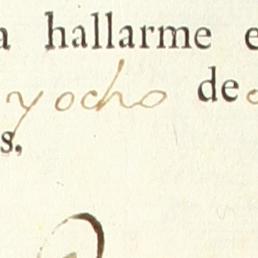 a hallarme e
y ocho de
s,